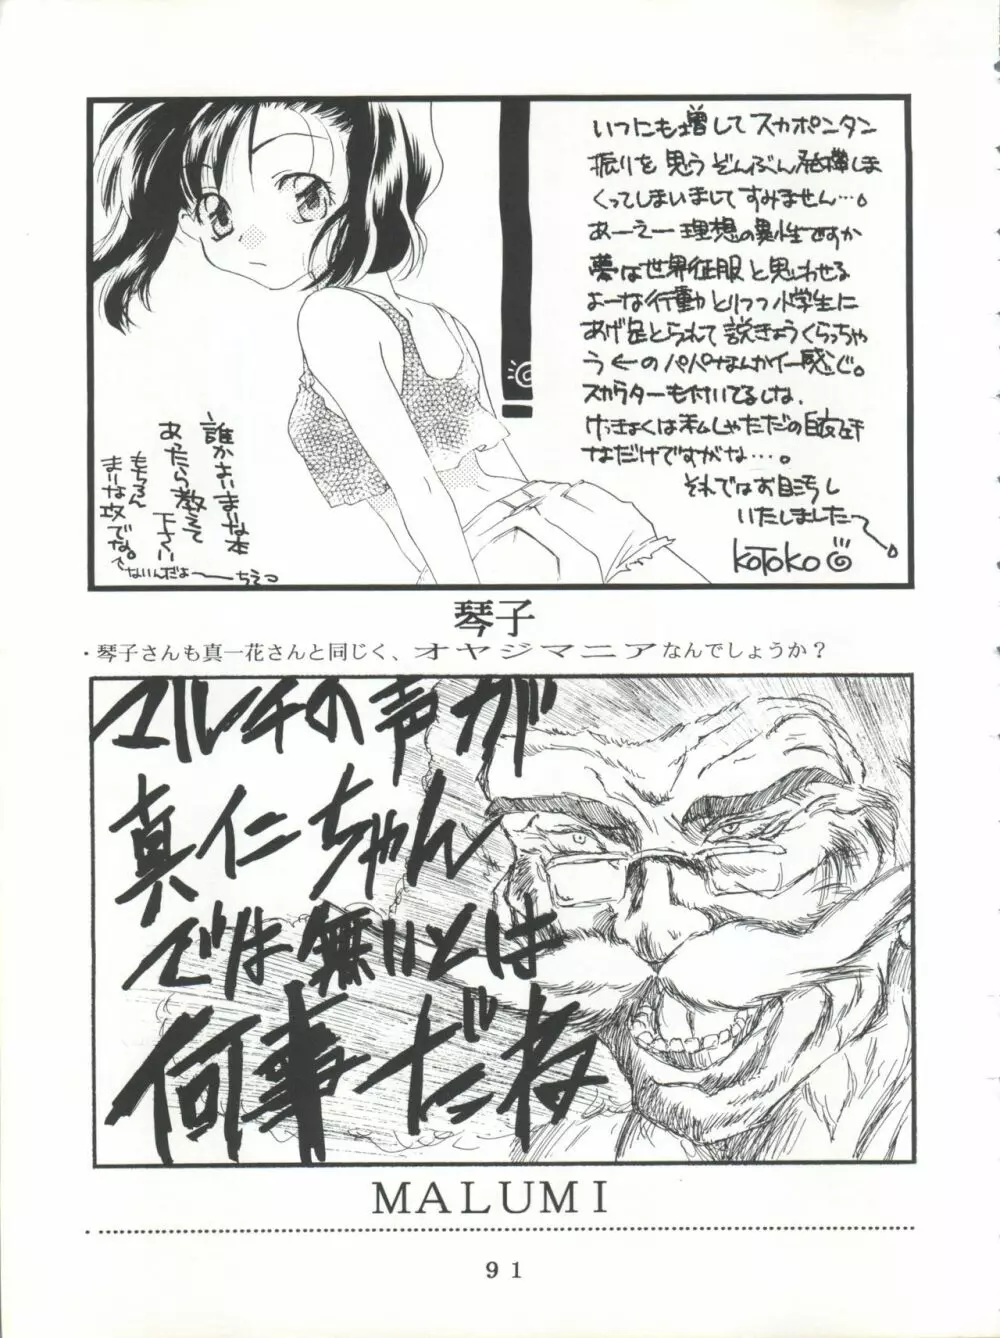 いつにも増してスカポンタン
振りを思うぞんぶん発揮しま
くってしまいましてすみません…。
あーえー理想の異性ですか
夢は世界征服と思わせる
よーな行動とりつつ小学生に
あげ足とられて説きょうくらっちゃ
う←のパパなんかイー感じ。
スカウターも付いてるしな、
けっきょくは私しゃただの
なだけですがな…。
それではお目汚し
いたしました〜。
KOTOKO
誰かよいまーな本
あったら教えて
下さい
もちろん
まーな攻でな。
でないんだよーーちえっ
琴子
・琴子さんも真一花さんと同じく、オヤジマニアなんでしょうか？
マルチの声が
真仁ちゃん
では無いとは
何事だね
MALUMI
91